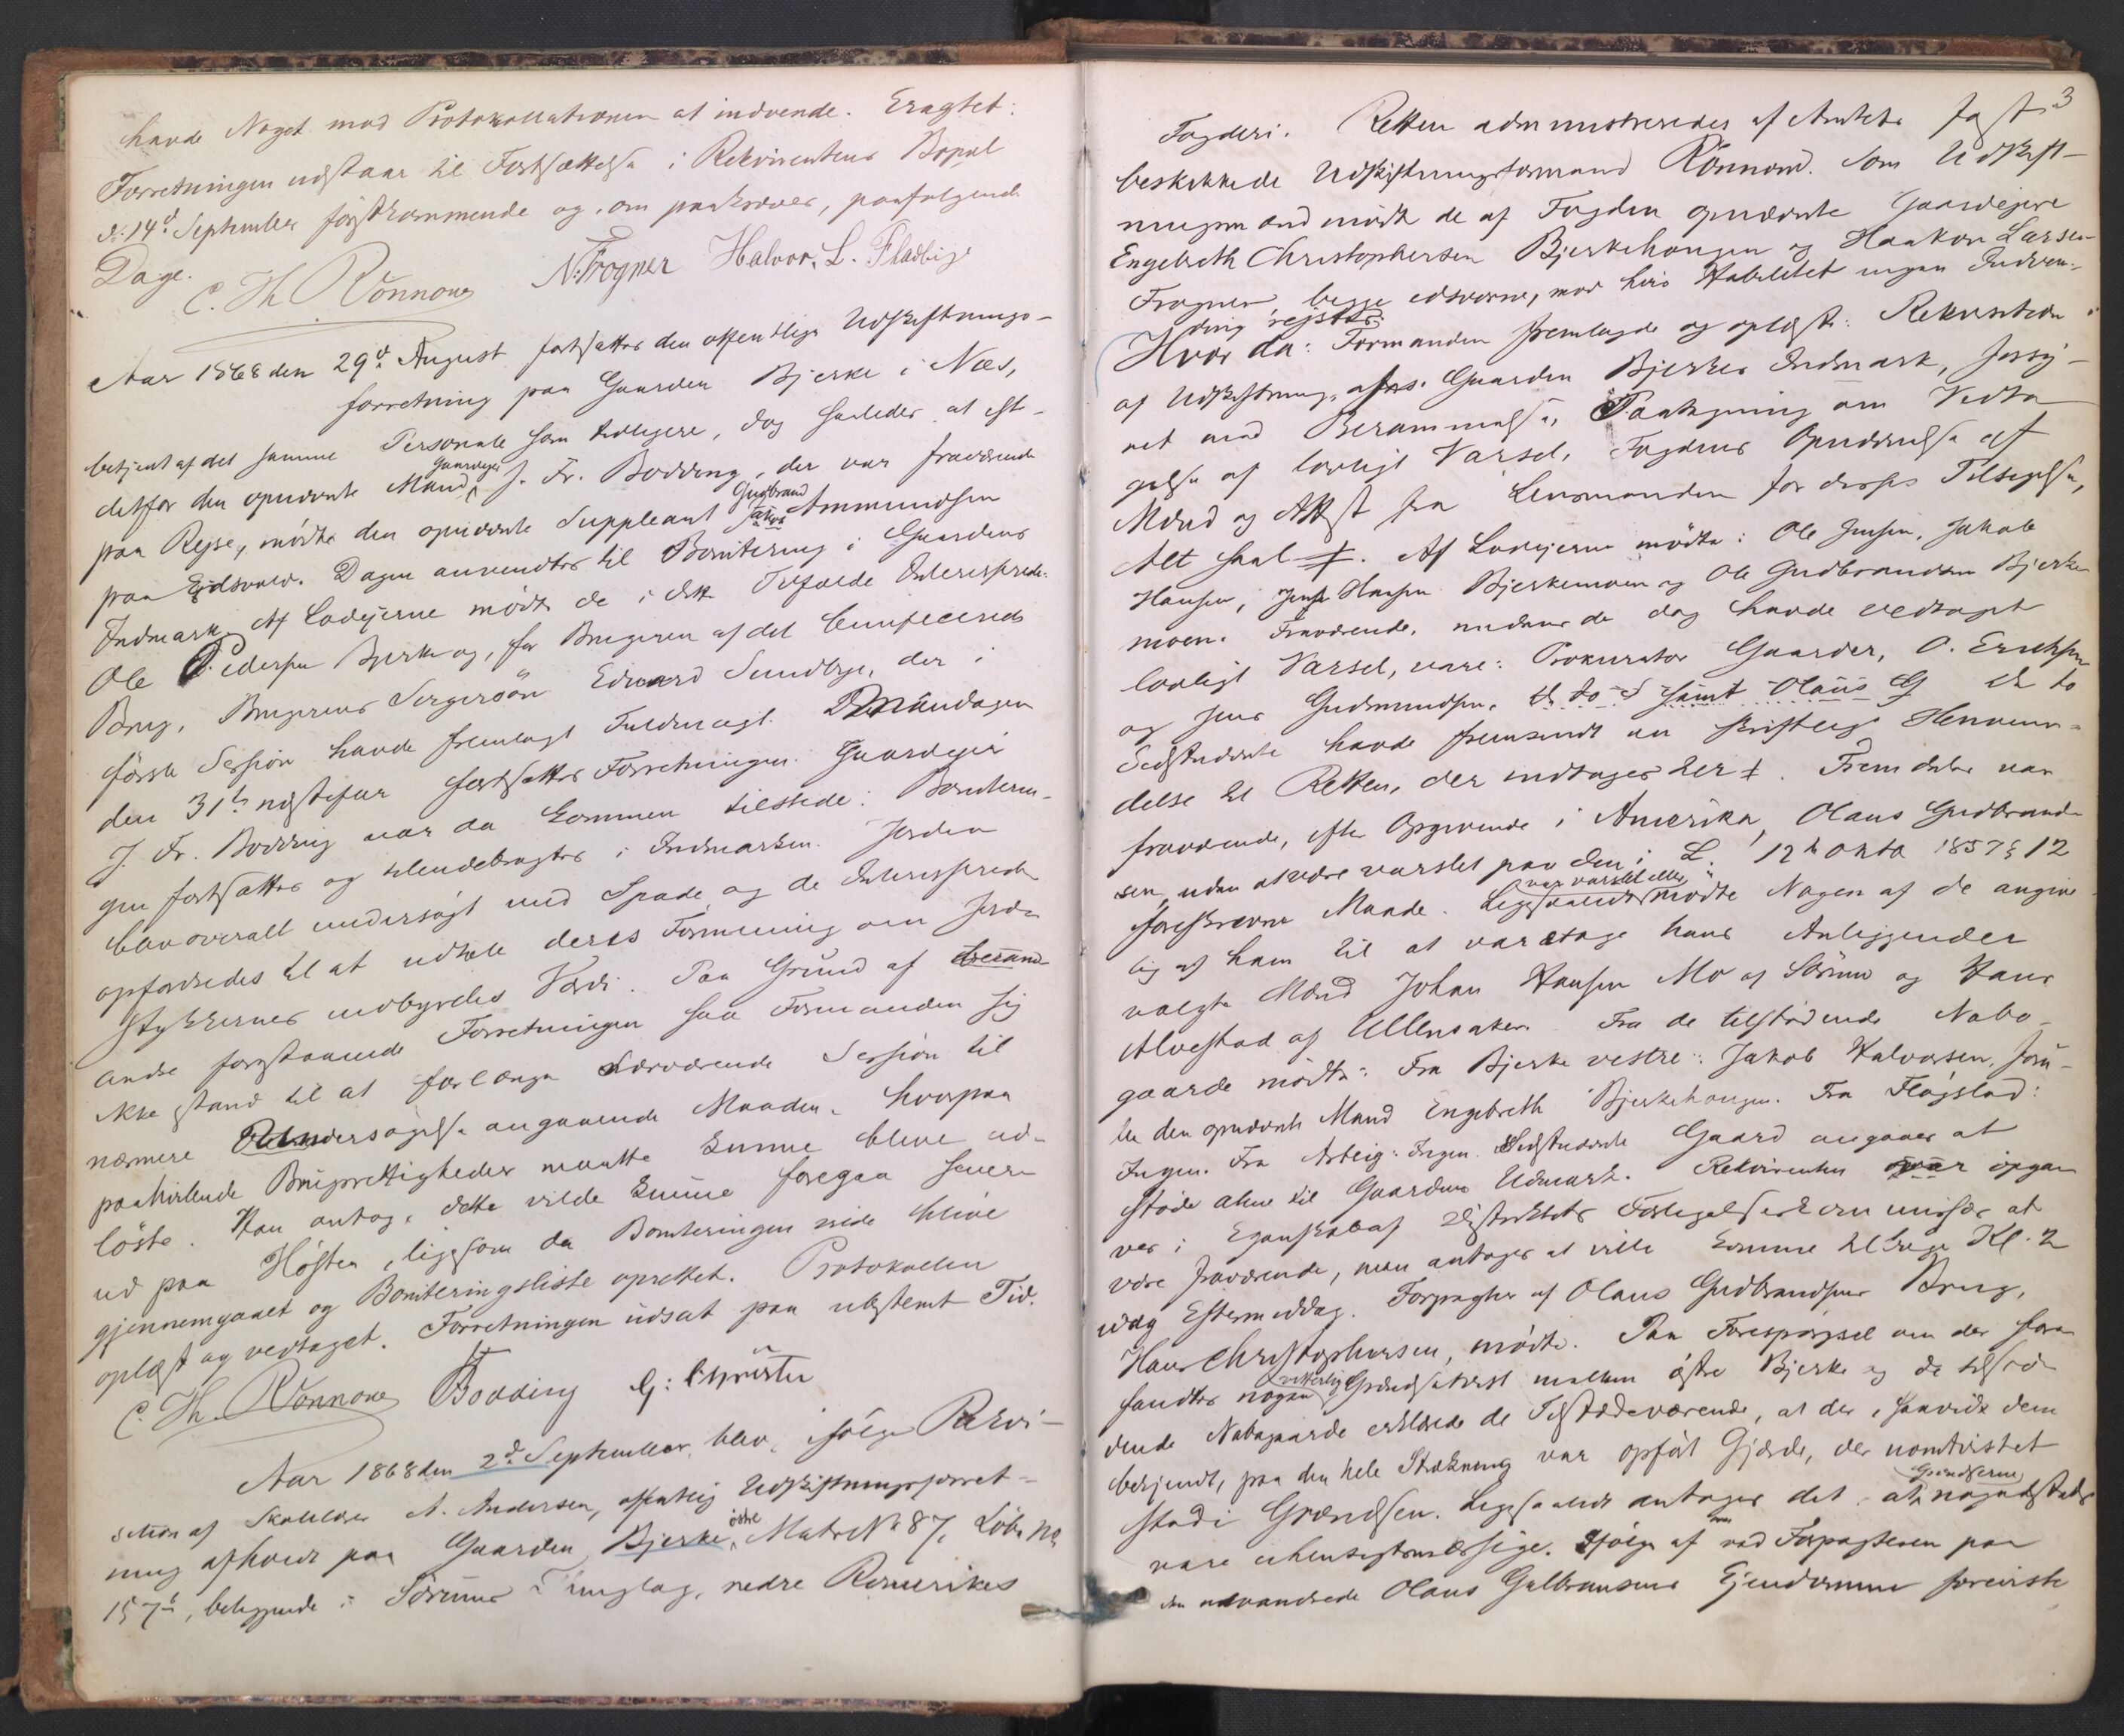 havde Noget mod Protokollationen at indvende. Eragtet:
Forretningen udstaar til Fortsættelse i Rekvirentens Bopæl
d. 14d September förstkommende og, om paakræves, paafølgende
Dage.
C. Th. Rönnow N. Frogner Halvor. L. Fladbige
Aar 1868 den 29d August fortsattes den offentlige Udskiftnings-
forretning paa Gaarden Bjerke i Næs,
betjent af det samme Personale som tidligere, dog saaledes at ist-
detfor den opnævnte Mand, Gaardejer J. Fr. Bodding, der var fraværende
paa Rejse, mødte den opnævnte Suppleant Gudbrand Ammundsen
paa Eidsvold. Dagen anvendtes til Bonitering i Gaardens
Indmark. Af Lodejerne mødte de i dette Tilfælde Interesserede:
Ole Pedersen Bjerke og, for Brugeren af det beneficerede
Brug, Brugerens Svigersön Edvard Sundbye, der i
förste Session havde fremlagt Fuldmagt. Mandagen
den 31te næstefter fortsattes Forretningen. Gaardejer
J. Fr. Bodding var da kommen tilstede. Boniterin-
gen fortsattes og tilendebragtes i Indmarken. Jorden
blev overalt undersøgt med Spade og de Interesserede
opfordredes til at udtale deres Formening om Jord-
stykkernes indbyrdes Værdi. Paa Grund af
andre forestaaende Forretninger saa Formanden sig
ikke istand til at forlænge nærværende Session til
nærmere Undersøgelse angaaende Maaden, hvorpaa
paahvilende Brugsrettigheder maatte kunne blive ud-
løste. Han antog, dette vilde kunne foregaa senere
ud paa Høsten, ligesom da Boniteringen vilde blive
gjennemgaaet og Boniteringsliste oprettet. Protokollen
oplæst og vedtaget. Forretningen udsat paa ubestemt Tid.
C. Th. Rönnow Bodding G:
Aar 1868 den 2d September blev, ifølge Rekvi-
sition af Skoleholder A. Andersen, offentlig Udskiftningsforret-
ning afholdt paa Gaarden Bjerke östre, Matr. No 87, Löbe No
157b, beliggende i Sörums Thinglag, nedre Romerikes
3
Fogderi. Retten administreredes af Amtets fast
beskikkede Udskiftningsformand Rönnow. Som Udskift-
ningsmænd mödte de af Fogden opnævnte Gaardejere
Engebreth Christophersen Bjerkehougen og Haakon Larsen
Frogner, begge edsvorne, mod hvis Habilitet ingen Indven-
ding rejstes.
Hvor da: Formanden fremlagde og oplæste: Rekvisition
af Udskiftning, afhs. Gaarden Bjerkes Indmark, forsy-
net med Berammelse, Paategning om Vedta-
gelse af lovligt Varsel, Fogdens Opnævnelse af
Mænd og Attest fra Lensmanden for deres Tilsigelse,
Alt saal ‡. Af Lodejerne mödte: Ole Jensen, Jakob
Hansen, Jens Hansen Bjerkemoen og Ole Gudbrandsen Bjerke-
moen. Fraværende, uagtet de dog havde vedtaget
lovligt Varsel, vare: Prokurator Gaarder, O. Erichsen
og Jens Gudmundsen. De to
Sidstnævnte havde fremsendt en skriftlig Henven-
delse til Retten, der indtages her ‡. Fremdeles var
fraværende, efter Opgivende i Amerika, Olaus Gudbrand-
sen, uden at være varslet paa den i L. 12te Okto 1857 § 12
foreskrevne Maade. Ligesaalidt var varslet eller mödte Nogen af de angive-
lig af ham til at varetage hans Anliggender
valgte Mænd Johan Hansen Mo af Sörum og Hans
Alvestad af Ullensaker. Fra de tilstødende Nabo-
gaarde mødte: Fra Bjerke vestre: Jakob Halvorsen, sam-
le den opnævnte Mand Engebreth Bjerkehougen. Fra Flögstad:
Ingen. Fra Arteig: Ingen. Sidstnævnte Gaard angaaes at
støde alene til Gaardens Udmark. Rekvirenten opga-
ves i Egenskab af Distriktets at
være fraværende, men antoges at ville komme tilstede Kl. 2
idag Eftermiddag. Forpagter af Olaus Gudbrandsens Brug,
Hans Christophersen, mødte. Paa Forespørgsel om der fore-
fandtes nogen vitterlig Grændsetvist mellem østre Bjerke og de tilstö-
dende Nabogaarde erklærede de Tilstedeværende, at der, saavidt dem
bekjendt, paa den hele Strækning var opfört Gjærde, der uomtvistet
stod i Grændsen. Ligesaalidt antoges det, at Grændserne nogetsteds
vare uhensigtsmæssige. Ifölge af ved Forpagteren paa
den udvandrede Olaus Gulbransens Ejendomme foreviste